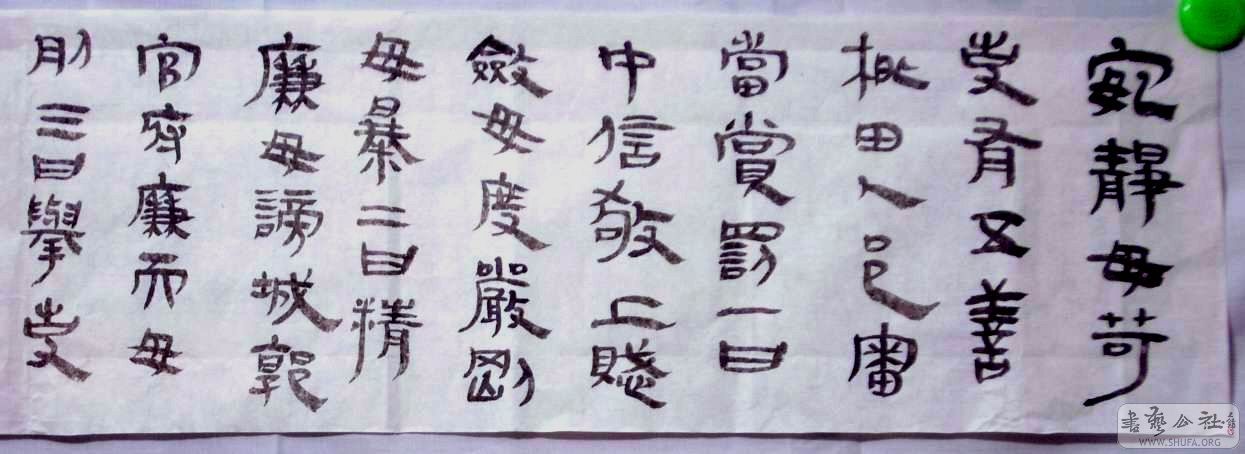 靜毋苛
吏有五善
田人邑審
當賞罰一曰
中信敬上賦
斂毋度嚴剛
毋暴二曰精
廉毋謗城郭
官府廉而毋
刖三曰舉吏
書藝公社
WWW.SHUFA.ORG